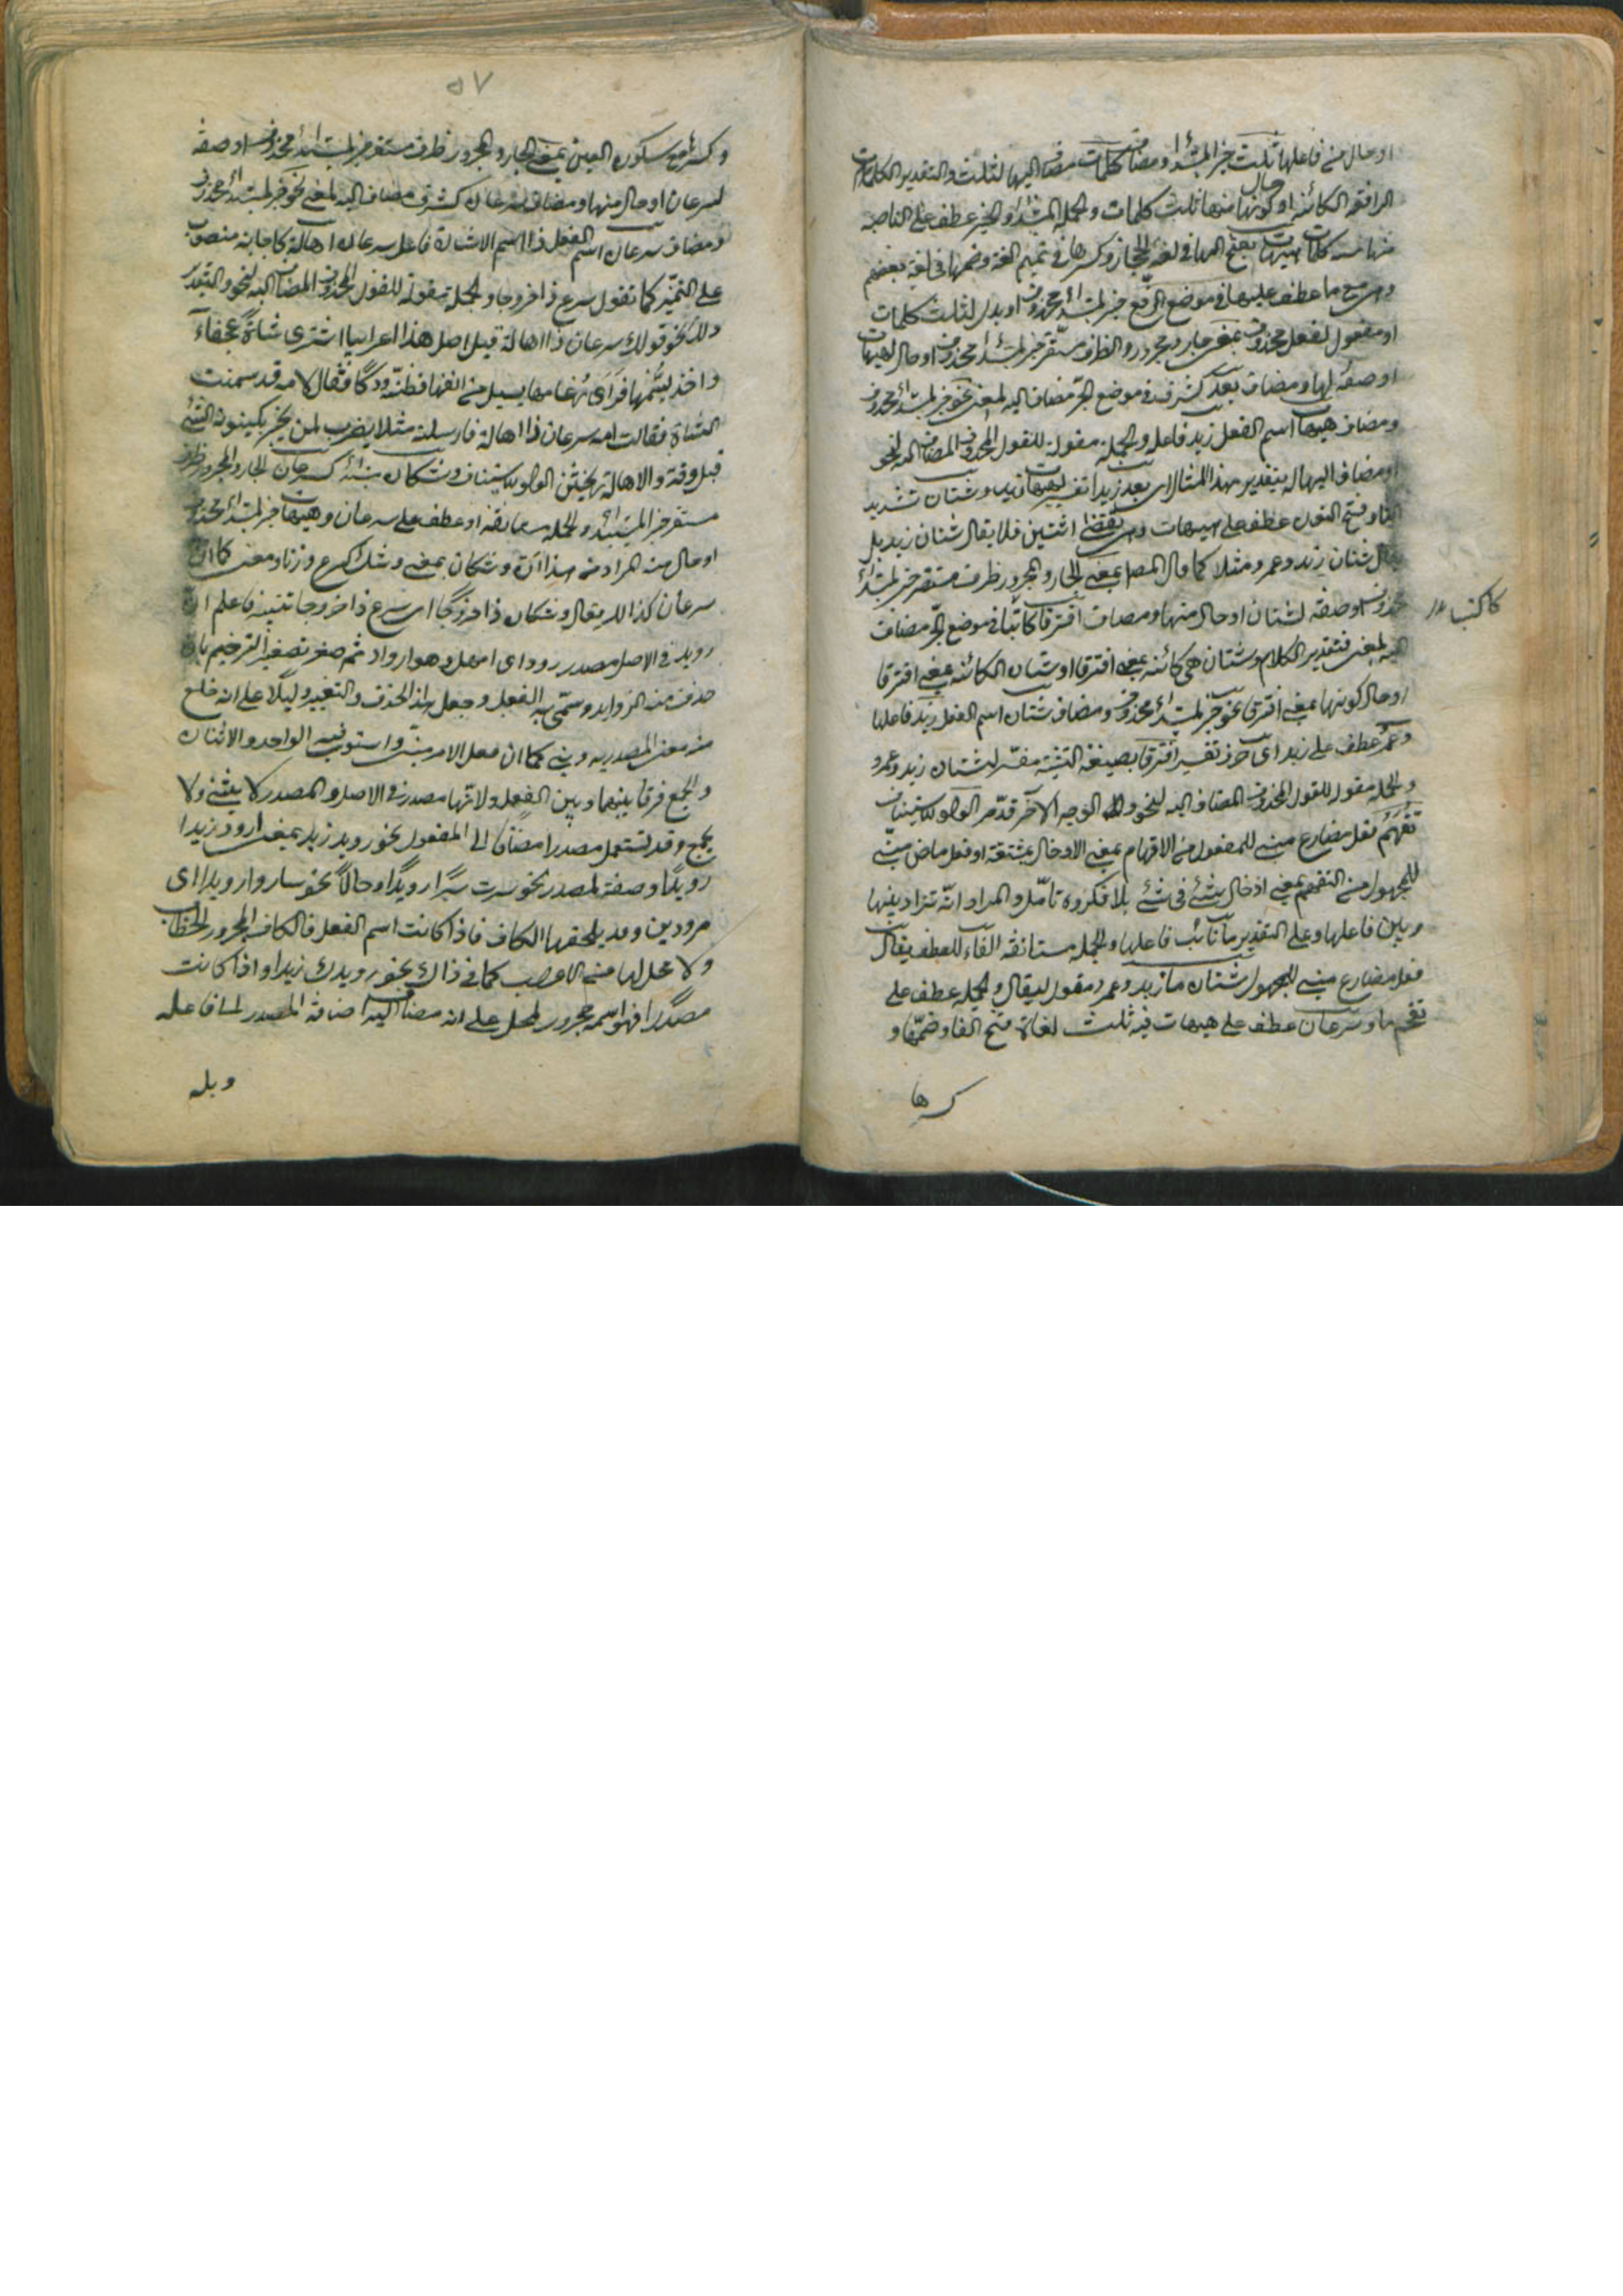 او حال من فاعلها ثلث خبر المبتدأ ومضاف كلمات مضاف اليها لثلث والتقدير الكلمات
الرافعة الكائنة او حال كونها منها ثلث كلمات والجملة المبتدأ والخبر عطف على الناصبة
منها ستة كلمات هيهات بفتح الهاء في لغة الحجاز وكسرها في تميم لغة وضمها في لغة بعضهم
وهي مع ما عطف عليها في موضع الرفع خبر لمبتدأ محذوف او بدل لثلث كلمات
او مفعول لفعل محذوف بمعنى جار ومجرور والظرف مستقر خبر لمبتدأ محذوف او حال لهيهات
او صفة لها ومضاف بعد كشرف في موضع الجر مضاف اليه لمعنى نحو خبر لمبتدأ محذوف
ومضاف هيهات اسم الفعل زيد فاعله والجملة مقولة للقول المحذوف المضاف اليه لنحو
او مضاف اليها له بتقدير بهذا المثال اي بعد زيد تفسير لهيهات زيد وشتان تشديد
التاء وفتح النون عطف على هيهات وهي يقتضي اثنين فلا يقال شتان زيد بل
يقال شتان زيد وعمرو مثلا كما قال المصـ بمعنى الجار والمجرور ظرف مستقر خبر لمبتدأ
محذوف او صفة لشتان او حال منها ومضاف افترقا كائنا في موضع الجر مضاف
اليه لمعنى فتقدير الكلام وشتان هي كائنة بمعنى افترقا او شتان الكائنة بمعنى افترقا
او حال كونها بمعنى افترقا نحو خبر لمبتدأ محذوف ومضاف شتان اسم الفعل زيد فاعلها
وعمرو عطف على زيد اي حرف تفسير افترقا بصيغة التثنية مفسر لشتان زيد وعمرو
والجملة مقول للقول المحذوف المضاف اليه لنحو والله الوجه الآخر قدمر الواو للاستيناف
تقحم فعل مضارع مبني للمفعول من الاقحام بمعنى الادخال بمشقة او فعل ماض مبني
للمجهول من التقحم بمعنى ادخال شئ في شئ بلا فكر وتأمل والمراد انه تزاد بينها
وبين فاعلها وعلى التقدير ما نائب فاعلها والجملة مستأنفة الفاء للعطف يقال
فعل مضارع مبني للمجهول شتان ما زيد وعمرو مقول ليقال والجملة عطف على
تقحم ما وسرعان عطف على هيهات فيه ثلث لغات فتح الفاء وضمها و
كسرها
كائنا
٥٧
وكسرها مع سكون العين بمعنى الجار والمجرور ظرف مستقر خبر لمبتدأ محذوف او صفة
لسرعان او حال منها ومضاف سرعان كشرف مضاف اليه لمعنى نحو خبر لمبتدأ محذوف
ومضاف سرعان اسم الفعل ذا اسم الاشارة فاعل سرعان اهالة كاجابة منصوب
على التميز كما تقول سرع ذا خروجا والجملة مقولة للقول المحذوف المضاف اليه لنحو والتقدير
ذلك نحو قولك سرعان ذا اهالة قيل اصل هذا اعرابيا اشترى شاة عجفاء
واخذ ليسمنها فرأى رغامها يسيل من انفها فظنه ودكا فقال لامه قد سمنت
الشاة فقالت امه سرعان ذا اهالة فارسلته مثلا يضرب لمن يخبر بكينونة الشئ
قبل وقته والاهالة الواو للاستيناف وشكان مبتدأ كسرعان الجار والمجرور ظرف
مستقر خبر المبتدأ والجملة مستأنفة او عطف على سرعان وهيهات خبر لمبتدأ محذوف
او حال منه المراد من هذا انه وشكان بمعنى وشك كسرع وزنا ومعنى كما ان
سرعان كذا لك يقال وشكان ذا خروجا اي سرع ذا خروجا تنبيه فاعلم ان
رويد في الاصل مصدر رود اي امهل وهو ارواد ثم صغر تصغير الترخيم بان
حذفت منه الزوايد وسمى به الفعل وجعل هذا الحذف والتغيير دليلا على انه خلع
منه معنى المصدرية وبني كما ان فعل الامر مبني واستوى فيه الواحد والاثنان
والجمع فرقا بينهما وبين الفعل ولانها مصدر في الاصل والمصدر لا يثنى ولا
يجمع وقد تستعمل مصدرا مضافا الى المفعول نحو رويد زيد بمعنى ارود زيدا
رويدا وصفة لمصدر نحو سرت سيرا رويدا وحالا نحو ساروا رويدا اي
مرودين وقد يلحقها الكاف فاذا كانت اسم الفعل فالكاف المجرور للخطاب
ولا محل لها من الاعراب كما في ذاك نحو رويدك زيدا واذا كانت
مصدرا فهو اسم مجرور المحل على انه مضاف اليه اضافة المصدر لما فاعله
وبله